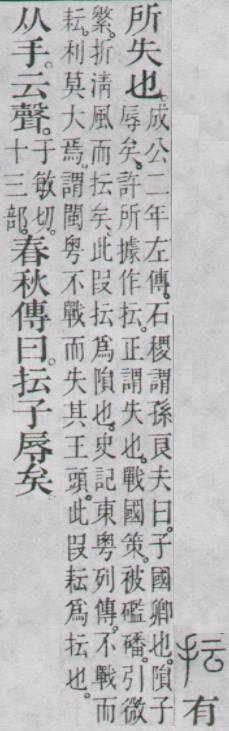 抎有
所失也。
成公二年左傳。石稷謂孫良夫曰。子國卿也。隕子
辱矣。許所據作抎。正謂失也。戰國策。被礛磻。引微
繁。折清風而抎矣。此叚抎爲隕也。史記東粵列傳。不戰而
耘。利莫大焉。謂閩粵不戰而失其王頭。此叚耘爲抎也。
从手。云聲。
于敏切。
十三部。
春秋傳曰。抎子辱矣